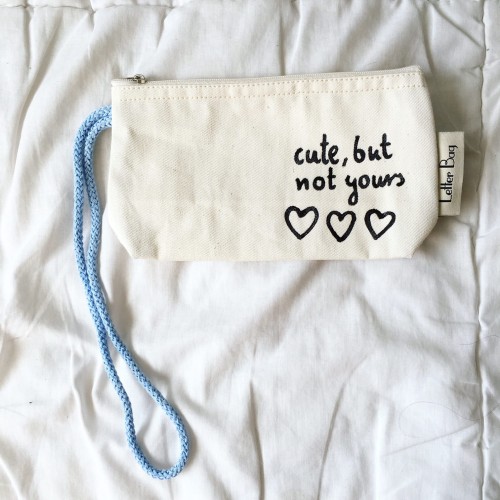 cute, but
not yours
Letter Bag